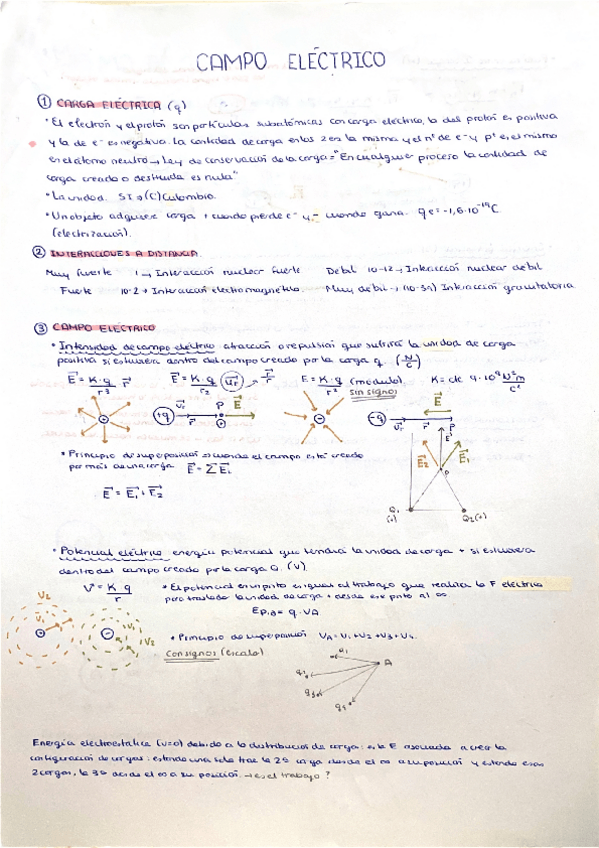 CAMPO ELÉCTRICO
① CARGA ELÉCTRICA (q)
• El electrón y el protón son partículas subatómicas con carga eléctrica, la del protón es positiva
y la de e⁻ es negativa. La cantidad de carga en los 2 es la misma y el nº de e⁻ y p⁺ es el mismo
en el átomo neutro → Ley de conservación de la carga = "En cualquier proceso la cantidad de
carga creada o destruida es nula"
• La unidad SI ⇒ (C) Culombio.
• Un objeto adquiere carga + cuando pierde e⁻ y - cuando gana. qe = -1,6·10⁻¹⁹C
(electrización).
② INTERACCIONES A DISTANCIA.
Muy fuerte 1 → Interacción nuclear fuerte Débil 10-12 → Interacción nuclear débil
Fuerte 10-2 → Interacción electromagnética. Muy débil → (10-39) Interacción gravitatoria
③ CAMPO ELÉCTRICO
• Intensidad de campo eléctrico atracción o repulsión que sufriría la unidad de carga
positiva si estuviera dentro del campo creado por la carga q (N/C)
E = K·q/r³ r E = K·q/r² (ur) → r/r E = K·q/r² (módulo) K = cte 9·10⁹ N²m/C²
sin signos
+q ur r P E -q ur r P E
• Principio de superposición ⇒ cuando el campo está creado
por más de una carga E = ΣEi
E = E1 + E2
E2 E E1 P
Q1 (+) Q2 (+)
• Potencial eléctrico energía potencial que tendría la unidad de carga + si estuviera
dentro del campo creado por la carga Q. (V)
V = K·q/r
• El potencial en un pto es igual al trabajo que realiza la F eléctrica
para trasladar la unidad de carga + desde ese pnto al ∞
Ep,a = q·VA
V2 V1 V2
• Principio de superposición VA = V1 + V2 + V3 + V4.
Con signos (escalar)
q1 A
q2
q3
Energía electrostática (v=0) debido a la distribución de carga: es la E asociada a crear la
configuración de cargas: estando una sola trae la 2ª carga desde el ∞ a su posición y estando esas
2 cargas, la 3ª desde el ∞ a su posición. → es el trabajo?